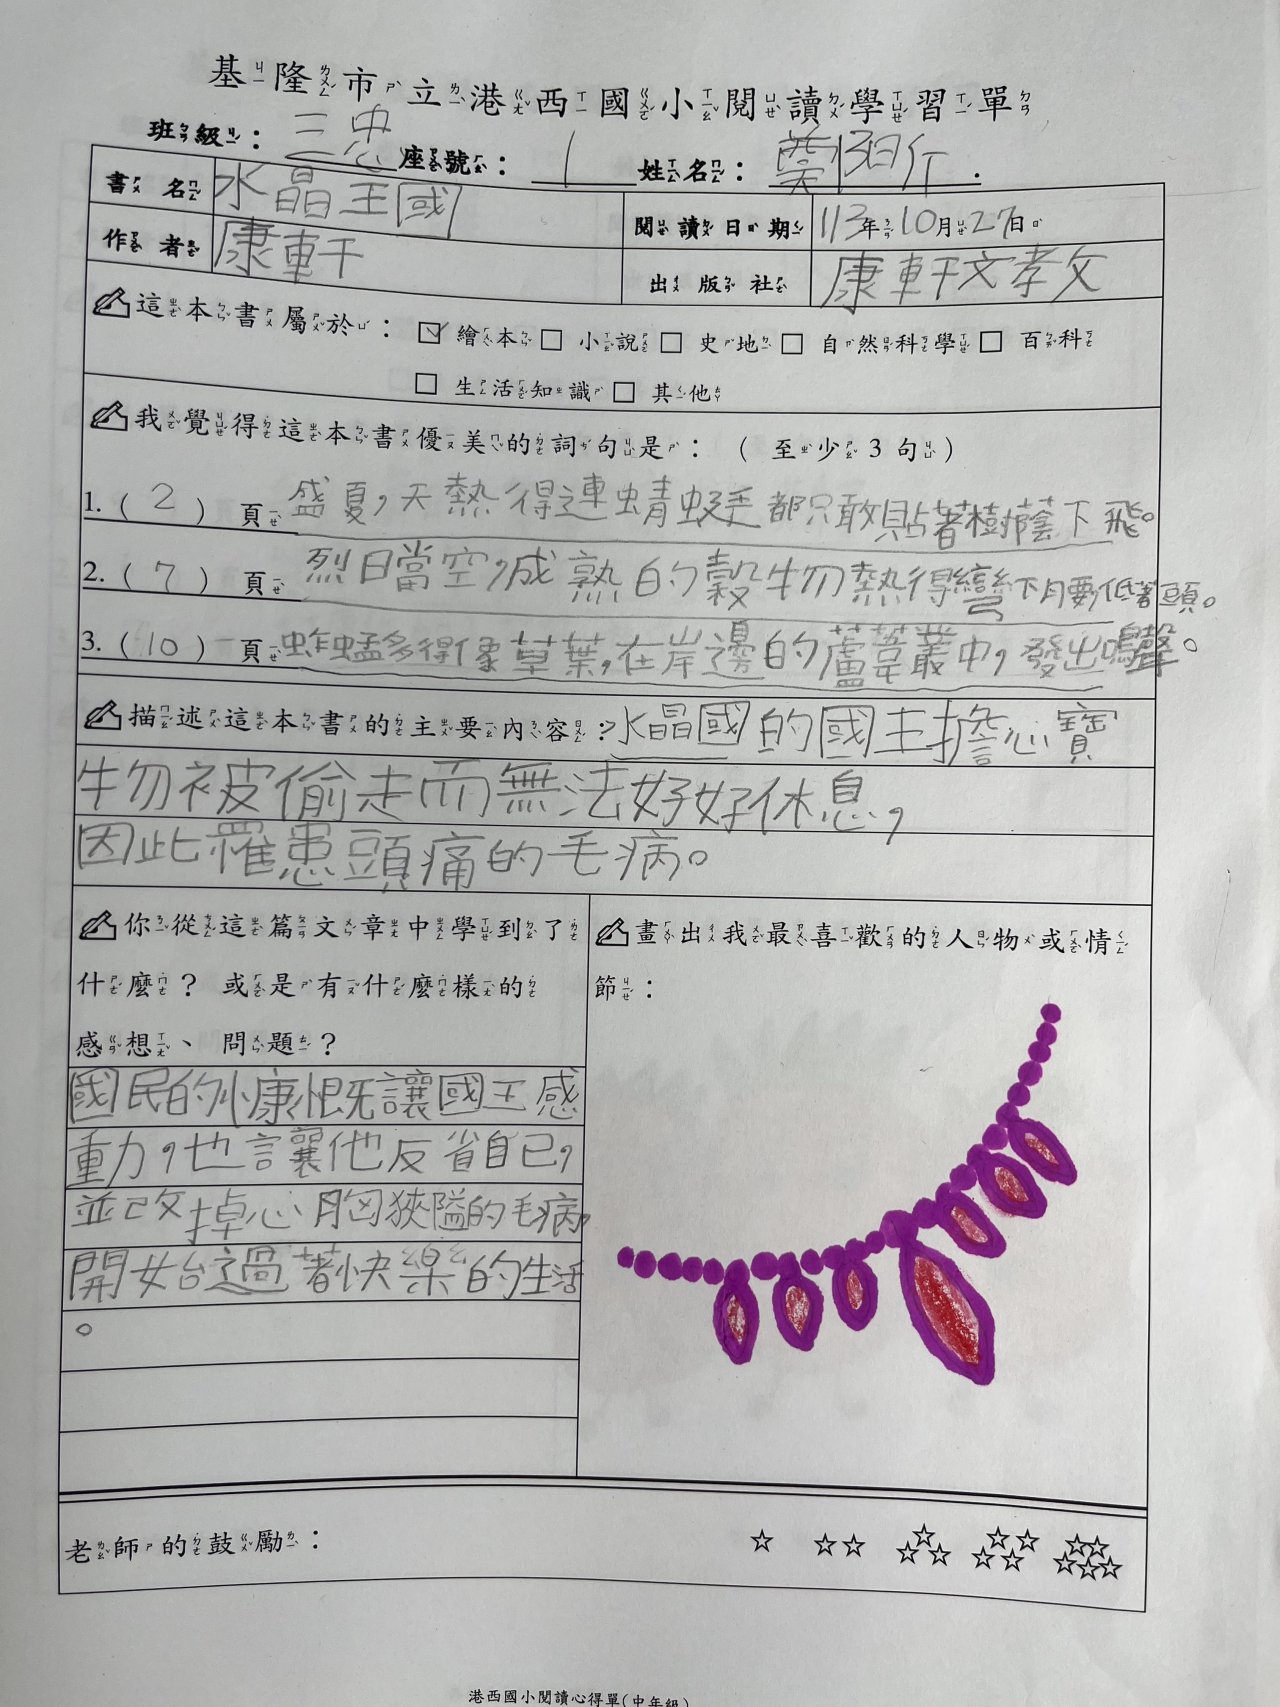 基隆市立港西國小閱讀學習單
班級：三忠 座號：1 姓名：
書名 水晶王國
閱讀日期 113年10月27日
作者 康軒
出版社 康軒文孝攵
這本書屬於：☑繪本□小說□史地□自然科學□百科
□生活知識□其他
我覺得這本書優美的詞句是：（至少3句）
1.（2）頁 盛夏，天熱得連蜻蜓都只敢貼著樹蔭下飛。
2.（7）頁 烈日當空，成熟的穀物熱得彎下腰低著頭。
3.（10）頁 蚱蜢多得像草葉，在岸邊的蘆葦叢中，發出鳴聲。
描述這本書的主要內容：水晶國的國王擔心寶
物被偷走而無法好好休息，
因此罹患頭痛的毛病。
你從這篇文章中學到了
什麼？或是有什麼樣的
感想、問題？
國民的小慷慨既讓國王感
動，也讓他反省自己，
並改掉心胸狹隘的毛病
開始過著快樂的生活
。
畫出我最喜歡的人物或情
節：
老師的鼓勵：☆ ☆☆ ☆☆☆ ☆☆☆☆ ☆☆☆☆☆
港西國小閱讀心得單(中年級)